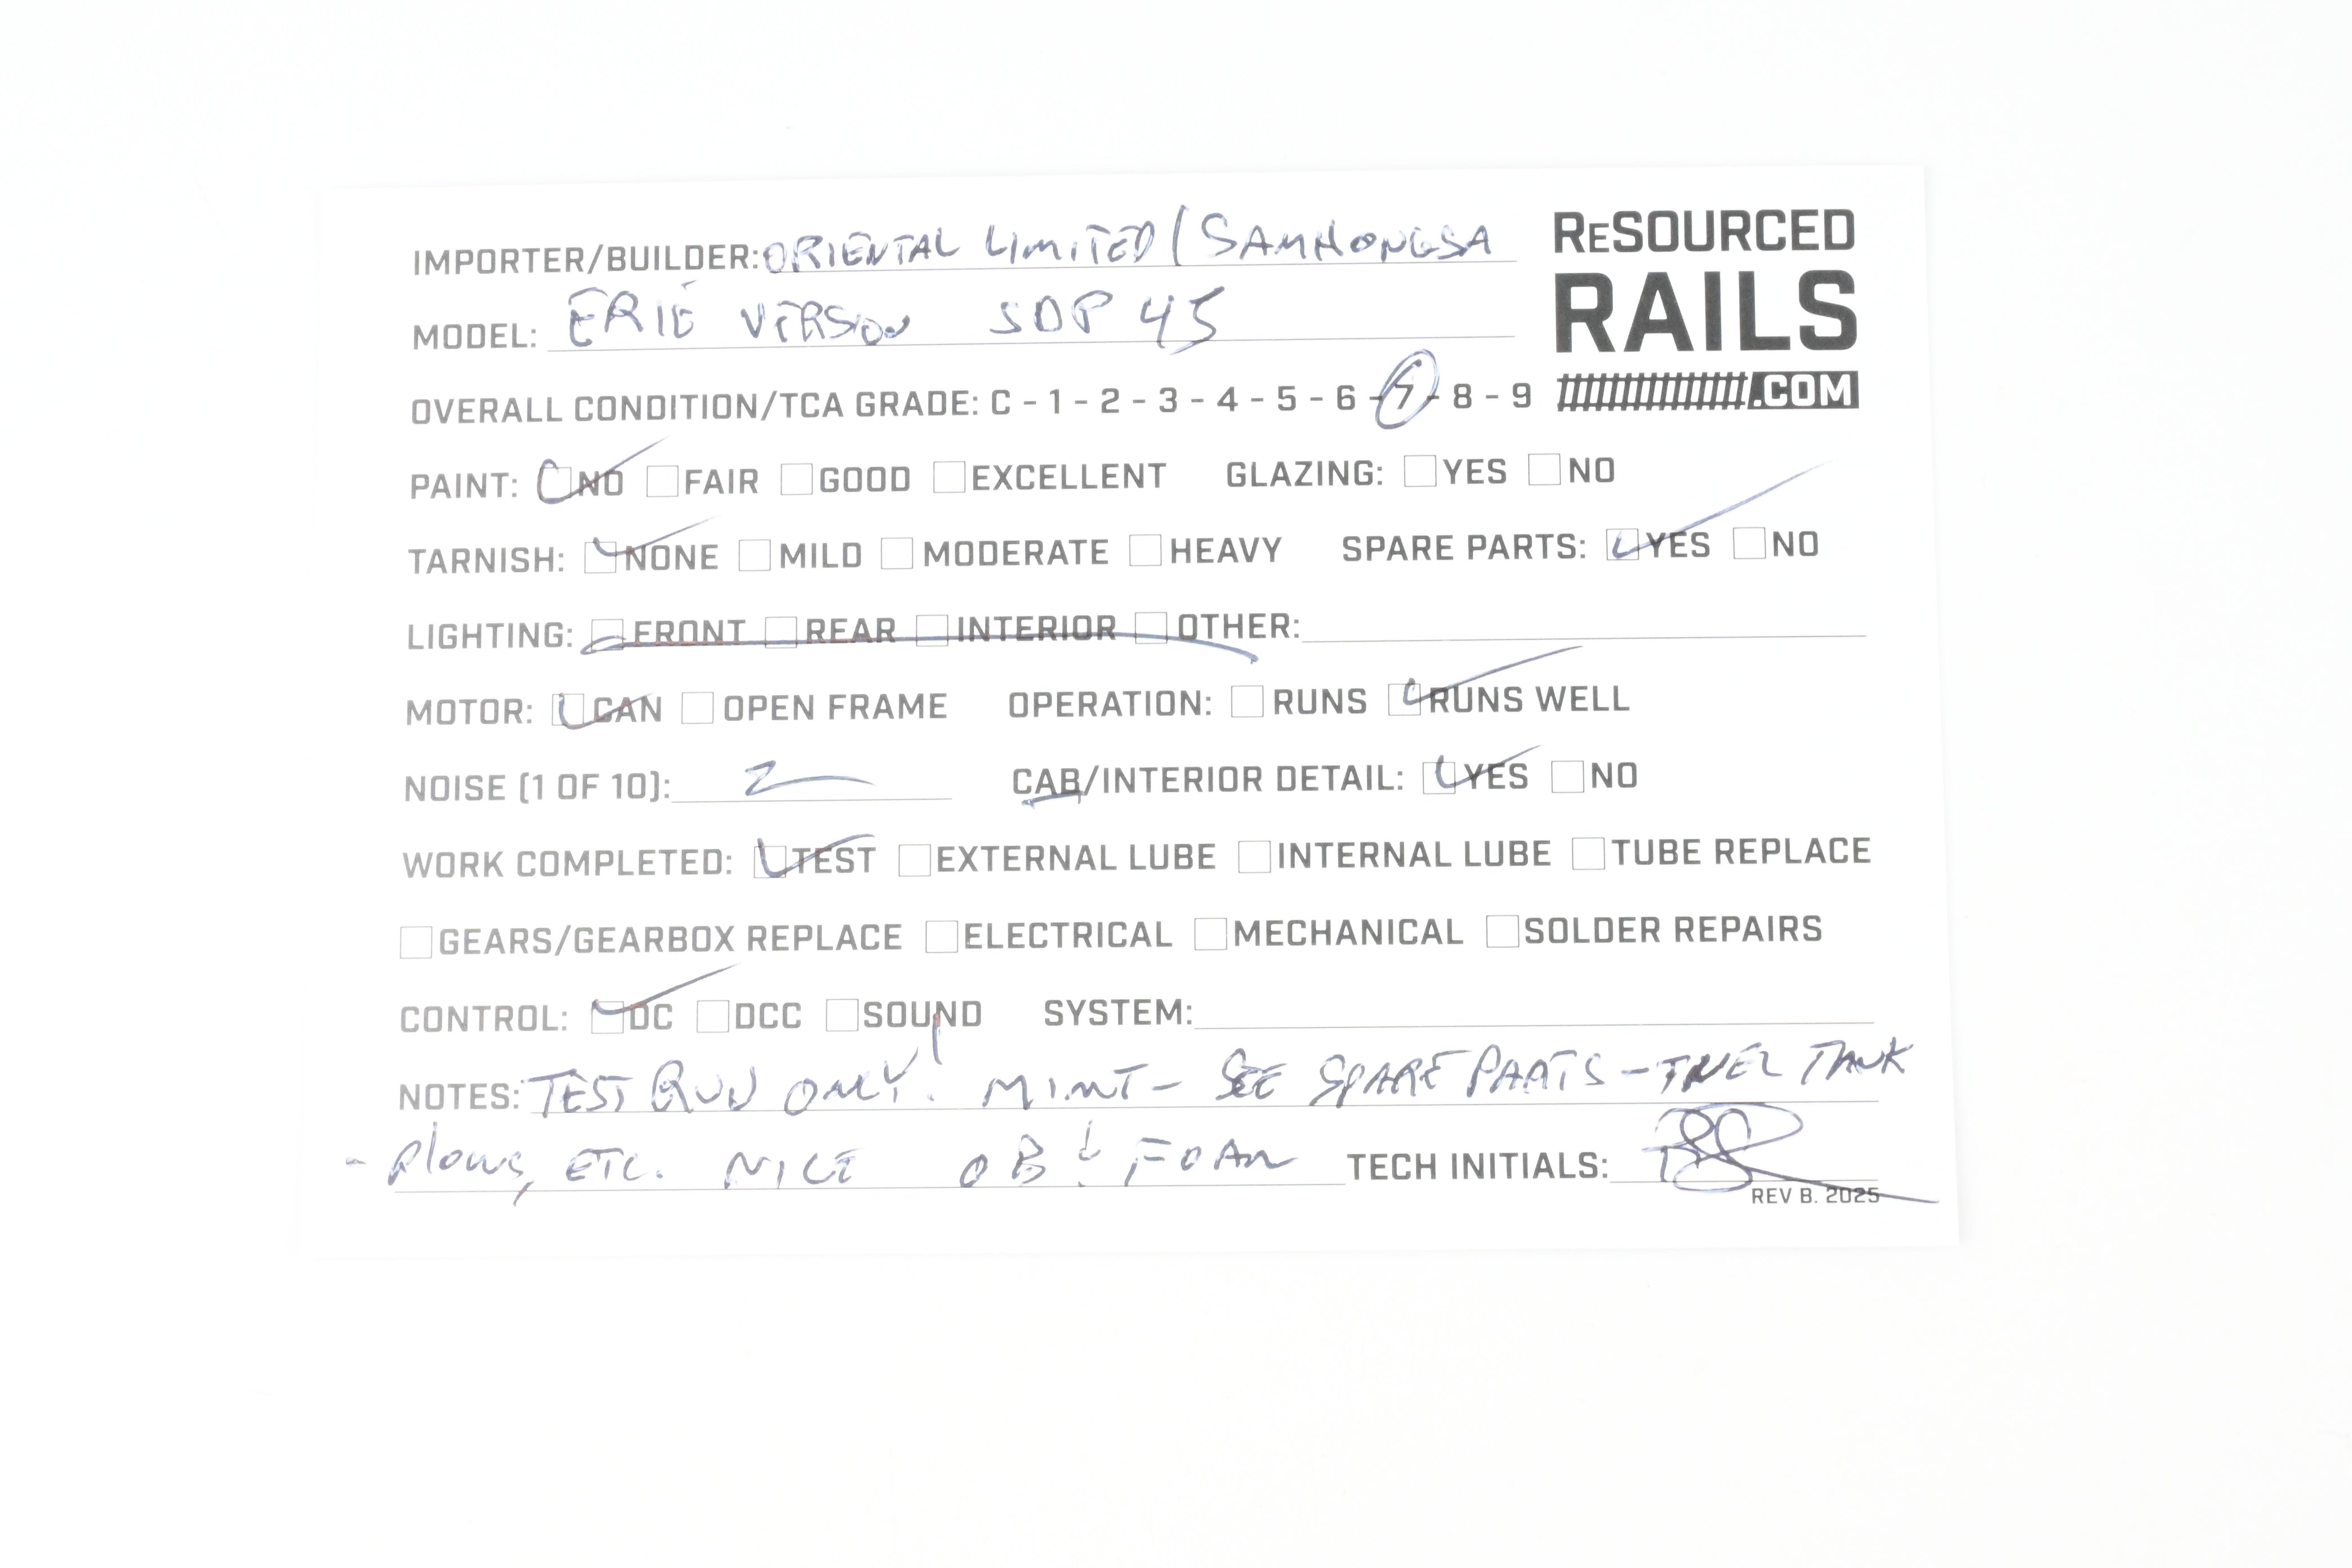 IMPORTER/BUILDER: ORIENTAL LIMITED / SAMHONGSA
RESOURCED
RAILS
.COM
MODEL: ERIE VERSION SDP 45
OVERALL CONDITION/TCA GRADE: C - 1 - 2 - 3 - 4 - 5 - 6 - 7 - 8 - 9
PAINT: NO FAIR GOOD EXCELLENT GLAZING: YES NO
TARNISH: NONE MILD MODERATE HEAVY SPARE PARTS: YES NO
LIGHTING: FRONT REAR INTERIOR OTHER:
MOTOR: CAN OPEN FRAME OPERATION: RUNS RUNS WELL
NOISE (1 OF 10): 2 CAB/INTERIOR DETAIL: YES NO
WORK COMPLETED: TEST EXTERNAL LUBE INTERNAL LUBE TUBE REPLACE
GEARS/GEARBOX REPLACE ELECTRICAL MECHANICAL SOLDER REPAIRS
CONTROL: DC DCC SOUND SYSTEM:
NOTES: TEST RUN ONLY! MINT - SEE SPARE PARTS - FUEL TANK
- Plows, ETC. NICE OB & FOAM TECH INITIALS:
REV B. 2025